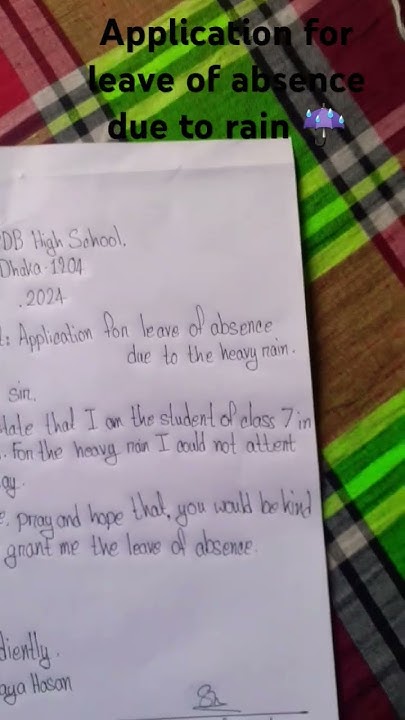 Application for
leave of absence
due to rain ☔
DB High School.
Dhaka-1204
.2024
: Application for leave of absence
due to the heavy rain.
sir.
state that I am the student of class 7 in
. For the heavy rain I could not attent
ay.
e, pray and hope that, you would be kind
grant me the leave of absence.
diently.
aya Hasan